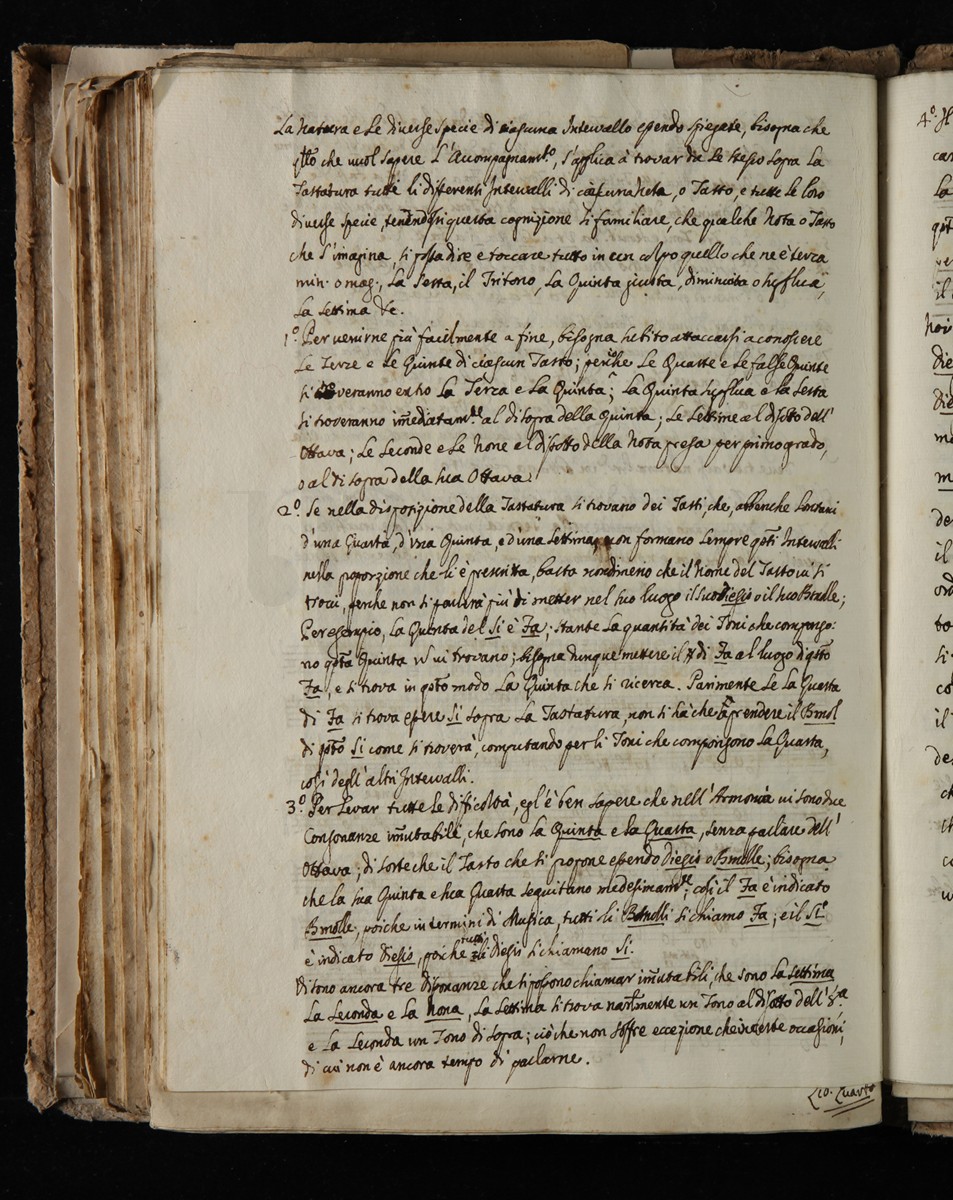 La natura e le diverse specie di ciascuna Intervallo essendo spiegate, bisogna che
qllo che vuol sapere l'Accompagnam.to, s'applica à trovar da se stesso sopra la
Tastatura tutti li differenti Intervalli di ciascuna Nota, o Tasto, e tutte le loro
diverse specie, tenendosi questa cognizione si familiare, che qualche Nota o Tasto
che s'imagina, si possa dire e toccare tutto in un colpo quello che ne è terza
min. o mag., la Sesta, il Tritono, la Quinta giusta, diminuita o supflua,
la Settima &c.
1.° Per venirne più facilmente a fine, bisogna subito attaccarsi a conoscere
le Terze e le Quinte di ciascun Tasto; perche le Quarte e le false Quinte
si troveranno entro la Terza e la Quinta; la Quinta supflua e la Sesta
si troveranno immediatam.te al di sopra della Quinta; le Settime al disotto dell'
Ottava; le Seconde e le None al disotto della Nota presa per primo grado,
o al di sopra della sua Ottava.
2.° Se nella disposizione della Tastatura si trovano dei Tasti, che, abbenche lontani
d'una Quarta, d'una Quinta, e d'una Settima, non formano sempre qsti Intervalli
nella proporzione che li è prescritta, basta nondimeno che il Nome del Tasto vi si
trovi, perche non si parlerà più di metter nel suo luogo il suo Diesis o il suo Bmolle;
Per esempio, la Quinta del Si è Fa; stante la quantità dei Toni che compongo:
no qsta Quinta vi si trovano; bisogna dunque mettere il # di Fa al luogo di qsto
Fa, e si trova in qsto modo la Quinta che si ricerca. Parimente se la Quarta
di Fa si trova essere Si sopra la Tastatura, non si hà che à prendere il Bmol
di qsto Si come si troverà, computando per li Toni che compongono la Quarta,
così degl'altri Intervalli.
3.° Per levar tutte le difficoltà, egl'è ben sapere che nell'Armonia vi sono due
Consonanze immutabili, che sono la Quinta e la Quarta, senza parlare dell'
Ottava; di sorte che il Tasto che si propone essendo Diesis o Bmolle; bisogna
che la sua Quinta e sua Quarta seguitano medesimam.te: così il Fa è indicato
Bmolle, poiche in termini di Musica, tutti li Bmolli si chiamo Fa; e il Si
è indicato Diesis, poiche tutti li Diesis si chiamano Si.
Vi sono ancora tre dissonanze che si possono chiamar immutabili, che sono la Settima
la Seconda e la Nona, la Settima si trova nartmente un Tono al disotto dell'8.a
e la Seconda un Tono di sopra; ciò che non soffre eccezione che in certe occasioni,
di cui non è ancora tempo di parlarne.
Lio. Quarto